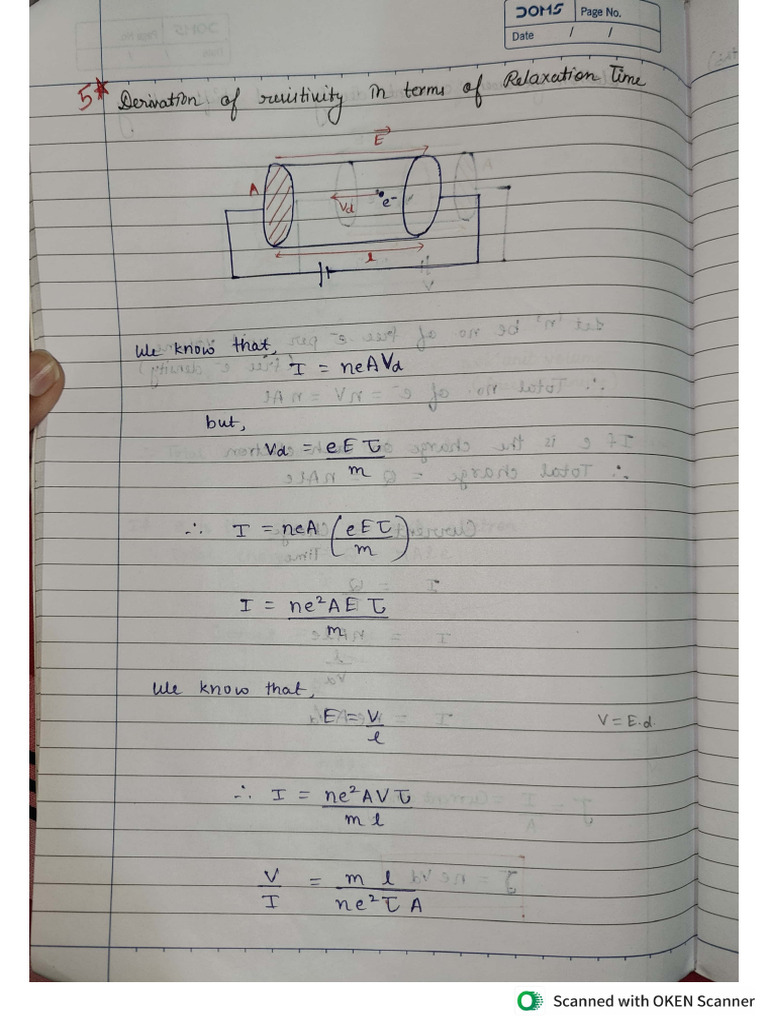 DOMS
Page No.
Date / /
5* Derivation of resistivity in terms of Relaxation Time
E
A
Vd
e-
l
We know that,
I = neAVd
but,
Vd = eEτ/m
∴ I = neA (eEτ/m)
I = ne²AEτ/m
We know that,
E = V/l
V = E.d.
∴ I = ne²AVτ/ml
V/I = ml/ne²τA
Scanned with OKEN Scanner